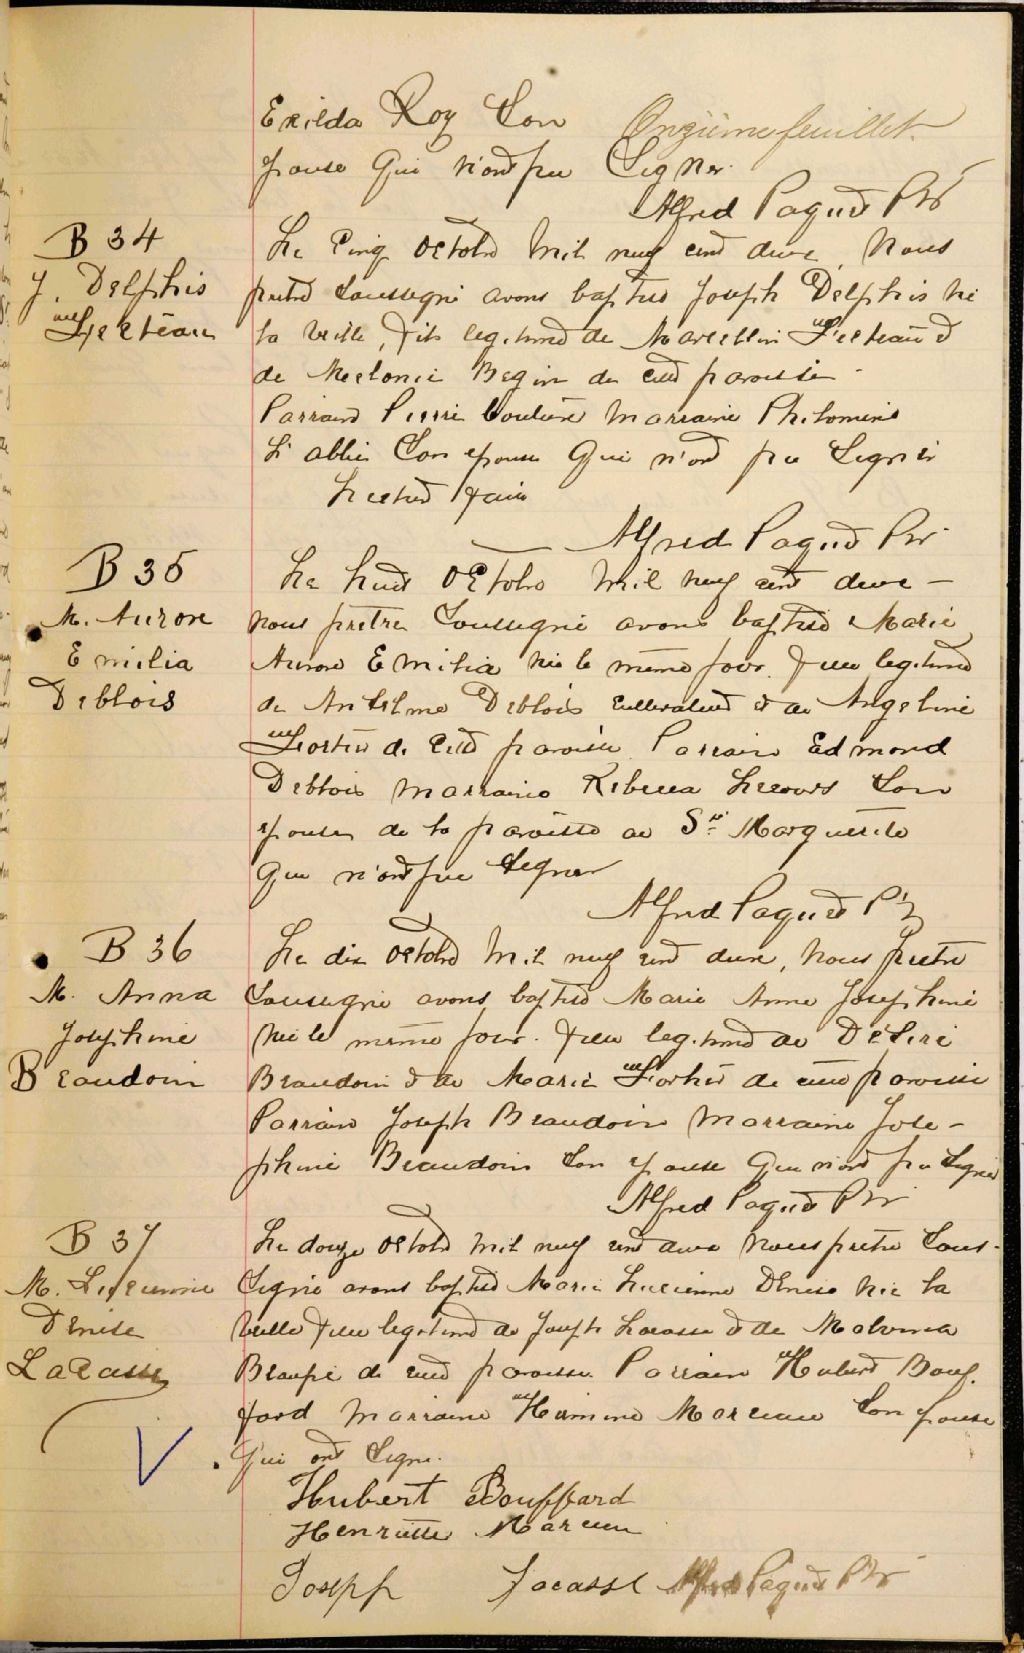 Exilda Roy Son Onzième feuillet
epouse Qui n'ont pu Signer
Alfred Paquet Ptr
B 34
J. Delphis
Fecteau
Le Cinq Octobre Mil neuf cent douze, Nous
pretre Soussigné avons baptisé Joseph Delphis né
la veille, fils legitime de Marcellin Fecteau &
de Melonie Begin de cette paroisse
Parrain Pierre Couture Marraine Philomène
L'abbé Son epouse Qui n'ont pu Signer
Lecture faite
Alfred Paquet Ptr
B 35
M. Aurore
Emilia
Deblois
Le huit Octobre Mil neuf cent douze
nous pretre Soussigné avons baptisé Marie
Aurore Emilia née le même jour fille legitime
de Anthelme Deblois cultivateur et de Angeline
Fortier de cette paroisse Parrain Edmond
Deblois Marraine Rebecca Lecours Son
epouse de la paroisse de Ste Marguerite
Qui n'ont pu Signer
Alfred Paquet Ptr
B 36
M. Anna
Josephine
Beaudoin
Le dix Octobre Mil neuf cent douze, Nous pretre
Soussigné avons baptisé Marie Anna Josephine
née le même jour. fille legitime de Désiré
Beaudoin & de Marie Fortier de cette paroisse
Parrain Joseph Beaudoin Marraine Jose-
phine Beaudoin Son epouse Qui n'ont pu Signer
Alfred Paquet Ptr
B 37
M. Lucienne
Denise
LaCasse
Le douze Octobre Mil neuf cent douze Nous pretre Sous-
Signé avons baptisé Marie Lucienne Denise née la
veille fille legitime de Joseph Lacasse & de Malvina
Beaupé de cette paroisse Parrain Hubert Bouf-
fard Marraine Moreau Son epouse
Qui ont Signé.
Hubert Bouffard
Henriette Moreau
Joseph Lacasse Alfred Paquet Ptr